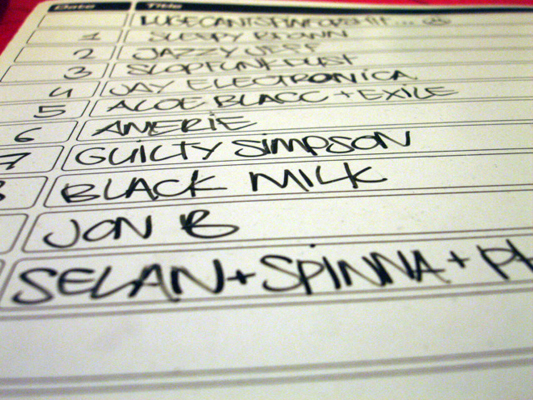 Date Title
1 SLEEPY BROWN
2 JAZZY JEFF
3 SLOPFUNKDUST
4 JAY ELECTRONICA
5 ALOE BLACC + EXILE
6 AMERIE
7 GUILTY SIMPSON
BLACK MILK
JON B
SELAN+SPINNA+